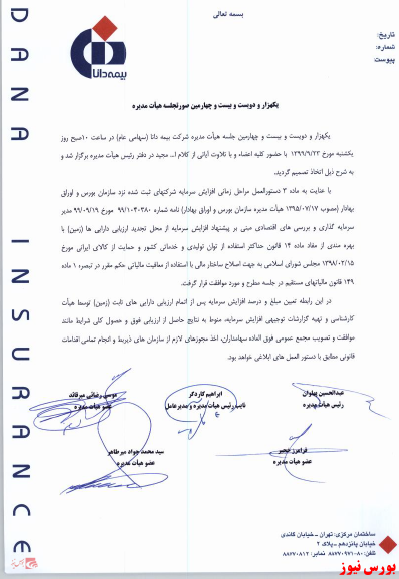 بسمه تعالی
DANA INSURANCE
بیمه دانا
تاریخ:
شماره:
پیوست:
یکهزار و دویست و بیست و چهارمین صورتجلسه هیأت مدیره
یکهزار و دویست و بیست و چهارمین جلسه هیأت مدیره شرکت بیمه دانا (سهامی عام) در ساعت ۱۰صبح روز
یکشنبه مورخ ۱۳۹۹/۹/۲۳ با حضور کلیه اعضاء و با تلاوت آیاتی از کلام ا... مجید در دفتر رئیس هیأت مدیره برگزار شد و
به شرح ذیل اتخاذ تصمیم گردید.
با عنایت به ماده ۳ دستورالعمل مراحل زمانی افزایش سرمایه شرکتهای ثبت شده نزد سازمان بورس و اوراق
بهادار (مصوب ۱۳۹۵/۰۷/۱۷ هیأت مدیره سازمان بورس و اوراق بهادار) نامه شماره ۹۹/۱۰۴۰۳۸۰ مورخ ۹۹/۰۹/۱۹ مدیر
سرمایه گذاری و بررسی های اقتصادی مبنی بر پیشنهاد افزایش سرمایه از محل تجدید ارزیابی دارایی ها (زمین) با
بهره مندی از مفاد ماده ۱۴ قانون حداکثر استفاده از توان تولیدی و خدماتی کشور و حمایت از کالای ایرانی مورخ
۱۳۹۸/۰۲/۱۵ مجلس شورای اسلامی به جهت اصلاح ساختار مالی با استفاده از معافیت مالیاتی حکم مقرر در تبصره ۱ ماده
۱۴۹ قانون مالیاتهای مستقیم در جلسه مطرح و مورد موافقت قرار گرفت.
در این رابطه تعیین مبلغ و درصد افزایش سرمایه پس از اتمام ارزیابی دارایی های ثابت (زمین) توسط هیأت
کارشناسی و تهیه گزارشات توجیهی افزایش سرمایه، منوط به نتایج حاصل از ارزیابی فوق و حصول کلی شرایط مانند
موافقت و تصویب مجمع عمومی فوق العاده سهامداران، اخذ مجوزهای لازم از سازمان های ذیربط و انجام تمامی اقدامات
قانونی مطابق با دستور العمل های ابلاغی خواهد بود.
عبدالحسین پهلوان
رئیس هیأت مدیره
ابراهیم کاردگر
نایب رئیس هیأت مدیره و مدیرعامل
موسی رضائی میرقائد
عضو هیأت مدیره
فرامرز خیبر
عضو هیأت مدیره
سید محمد جواد میرطاهر
عضو هیأت مدیره
ساختمان مرکزی: تهران - خیابان گاندی
خیابان پانزدهم - پلاک ۲
تلفن: ۸۰-۸۸۷۷۰۹۷۱ نمابر: ۸۸۷۷۰۸۱۲
بورس نیوز